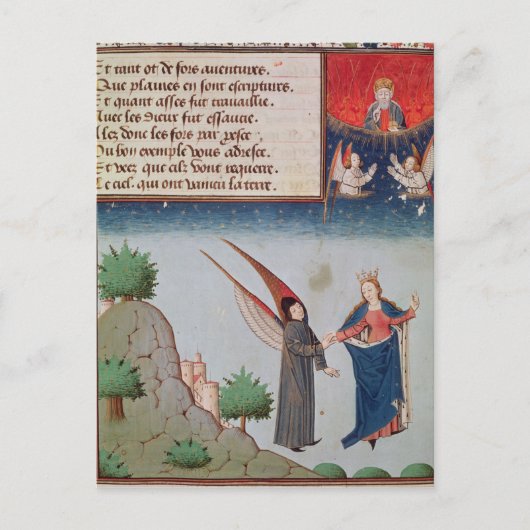 Et tant ot de fors aventures.
Que plaines en sont escriptures.
Et quant asses fut travaillie.
Avec les dieux fut essaucie.
Alez donc les fors par presce.
Du bon exemple vous adresce.
Et veez que cilz vont requerre.
Le ciel. qui ont vaincu la terre.